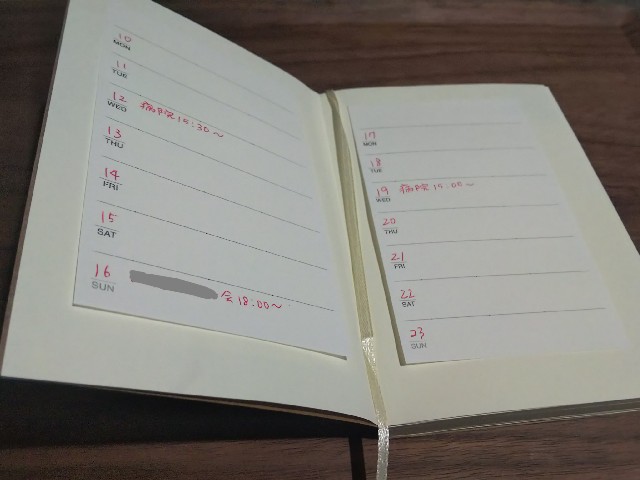 10
MON
11
TUE
12 病院 15:30～
WED
13
THU
14
FRI
15
SAT
16 会 18:00～
SUN
17
MON
18
TUE
19 病院 15:00～
WED
20
THU
21
FRI
22
SAT
23
SUN